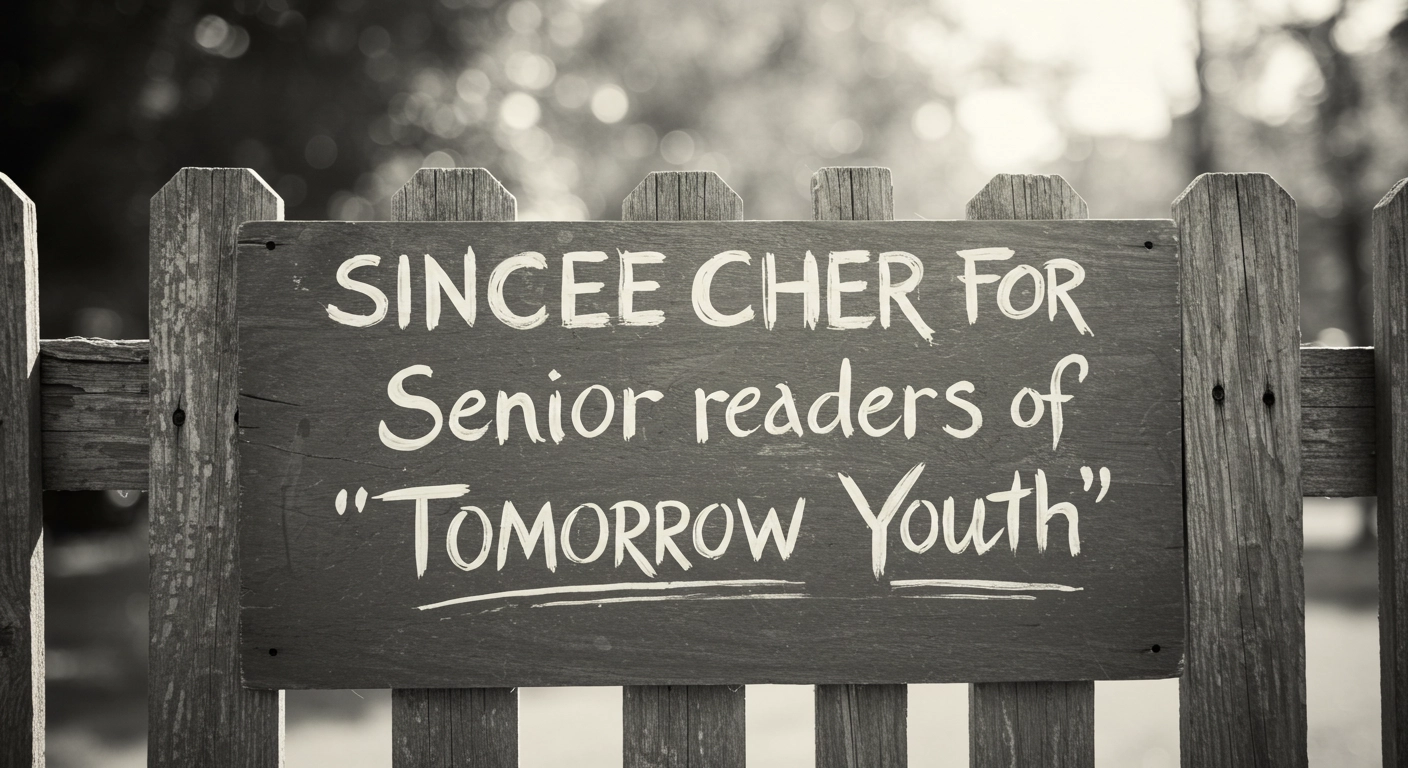 SINCEE CHER FOR
Senior readers of
“TOMORROW Youth”